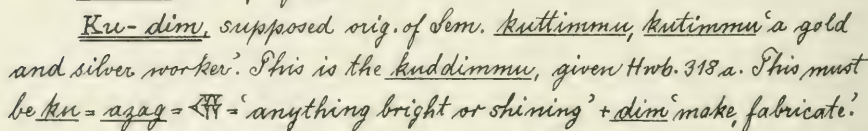 Ku-dim, supposed orig. of Sem. kuttimmu, kutimmu 'a gold
and silver worker'. This is the kuddimmu, given Hwb. 318a. This must
be ku = azag = = 'anything bright or shining' + dim 'make, fabricate'.